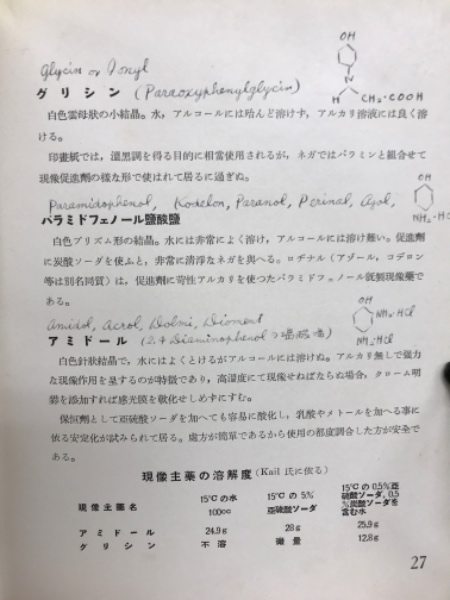 OH
Glycin or Ionyl
グリシン (Paraoxyphenylglycin)
N
H CH₂·COOH
白色雲母狀の小結晶。水，アルコールには殆んど溶けず，アルカリ溶液には良く溶
ける。
印畫紙では，溫黑調を得る目的に相當使用されるが，ネガではパラミンと組合せて
現像促進劑の樣な形で使はれて居るに過ぎぬ。
OH
Paramidophenol, Kodelon, Paranol, P crinal, Azol,
NH₂·HC
パラミドフェノール鹽酸鹽
白色プリズム形の結晶。水には非常によく溶け，アルコールには溶け難い。促進劑
に炭酸ソーダを使ふと，非常に清淨なネガを與へる。ロヂナル（アゾール，コデロン
等は別名同質）は，促進劑に苛性アルカリを使つたパラミドフェノール既製現像藥で
ある。
OH
Amidol, Acrol, Dolmi,
NH₂·HCl
アミドール (2.4 Diaminophenol
NH₂·HCl
白色針狀結晶で，水にはよくとけるがアルコールには溶けぬ。アルカリ無しで强力
な現像作用を呈するのが特徵であり，高溫度にて現像せねばならぬ場合，クローム明
礬を添加すれば感光膜を軟化せしめずにすむ。
保恒劑として亜硫酸ソーダを加へても容易に酸化し，乳酸やメトールを加へる事に
依る安定化が試みられて居る。處方が簡單であるから使用の都度調合した方が安全で
ある。
現像主藥の溶解度 (Kail 氏に依る)
現像主藥名 15°Cの水 100cc 15°Cの5% 亜硫酸ソーダ 15°Cの0.5%亜硫酸ソーダ、0.5%炭酸ソーダを含む水
アミドール 24.9g 28g 25.9g
グリシン 不溶 微量 12.8g
27